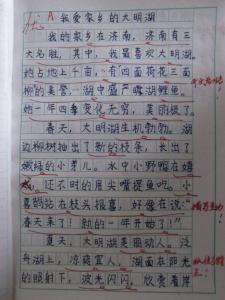 优 A 我爱家乡的大明湖
我的家乡在济南,济南有三
大名胜,其中,我最喜欢大明湖。
她占地上千亩,有四面荷花三面
柳的美誉,湖中盛产露湖鲤鱼。
她一年四季变化无穷,美丽极了。
春天,大明湖生机勃勃。湖
边柳树抽出了新的枝条,长出了
嫩绿的小芽儿。水中小野鸭在嬉
戏,还不时的用尖嘴捉鱼吃。小
喜鹊站在枝头报喜,好像在说:“
春天来了!新的一年开始了!”
夏天,大明湖美丽动人。泛
舟湖上,凉爽宜人。湖面在阳光
的眼射下,波光闪闪。欣赏着岸